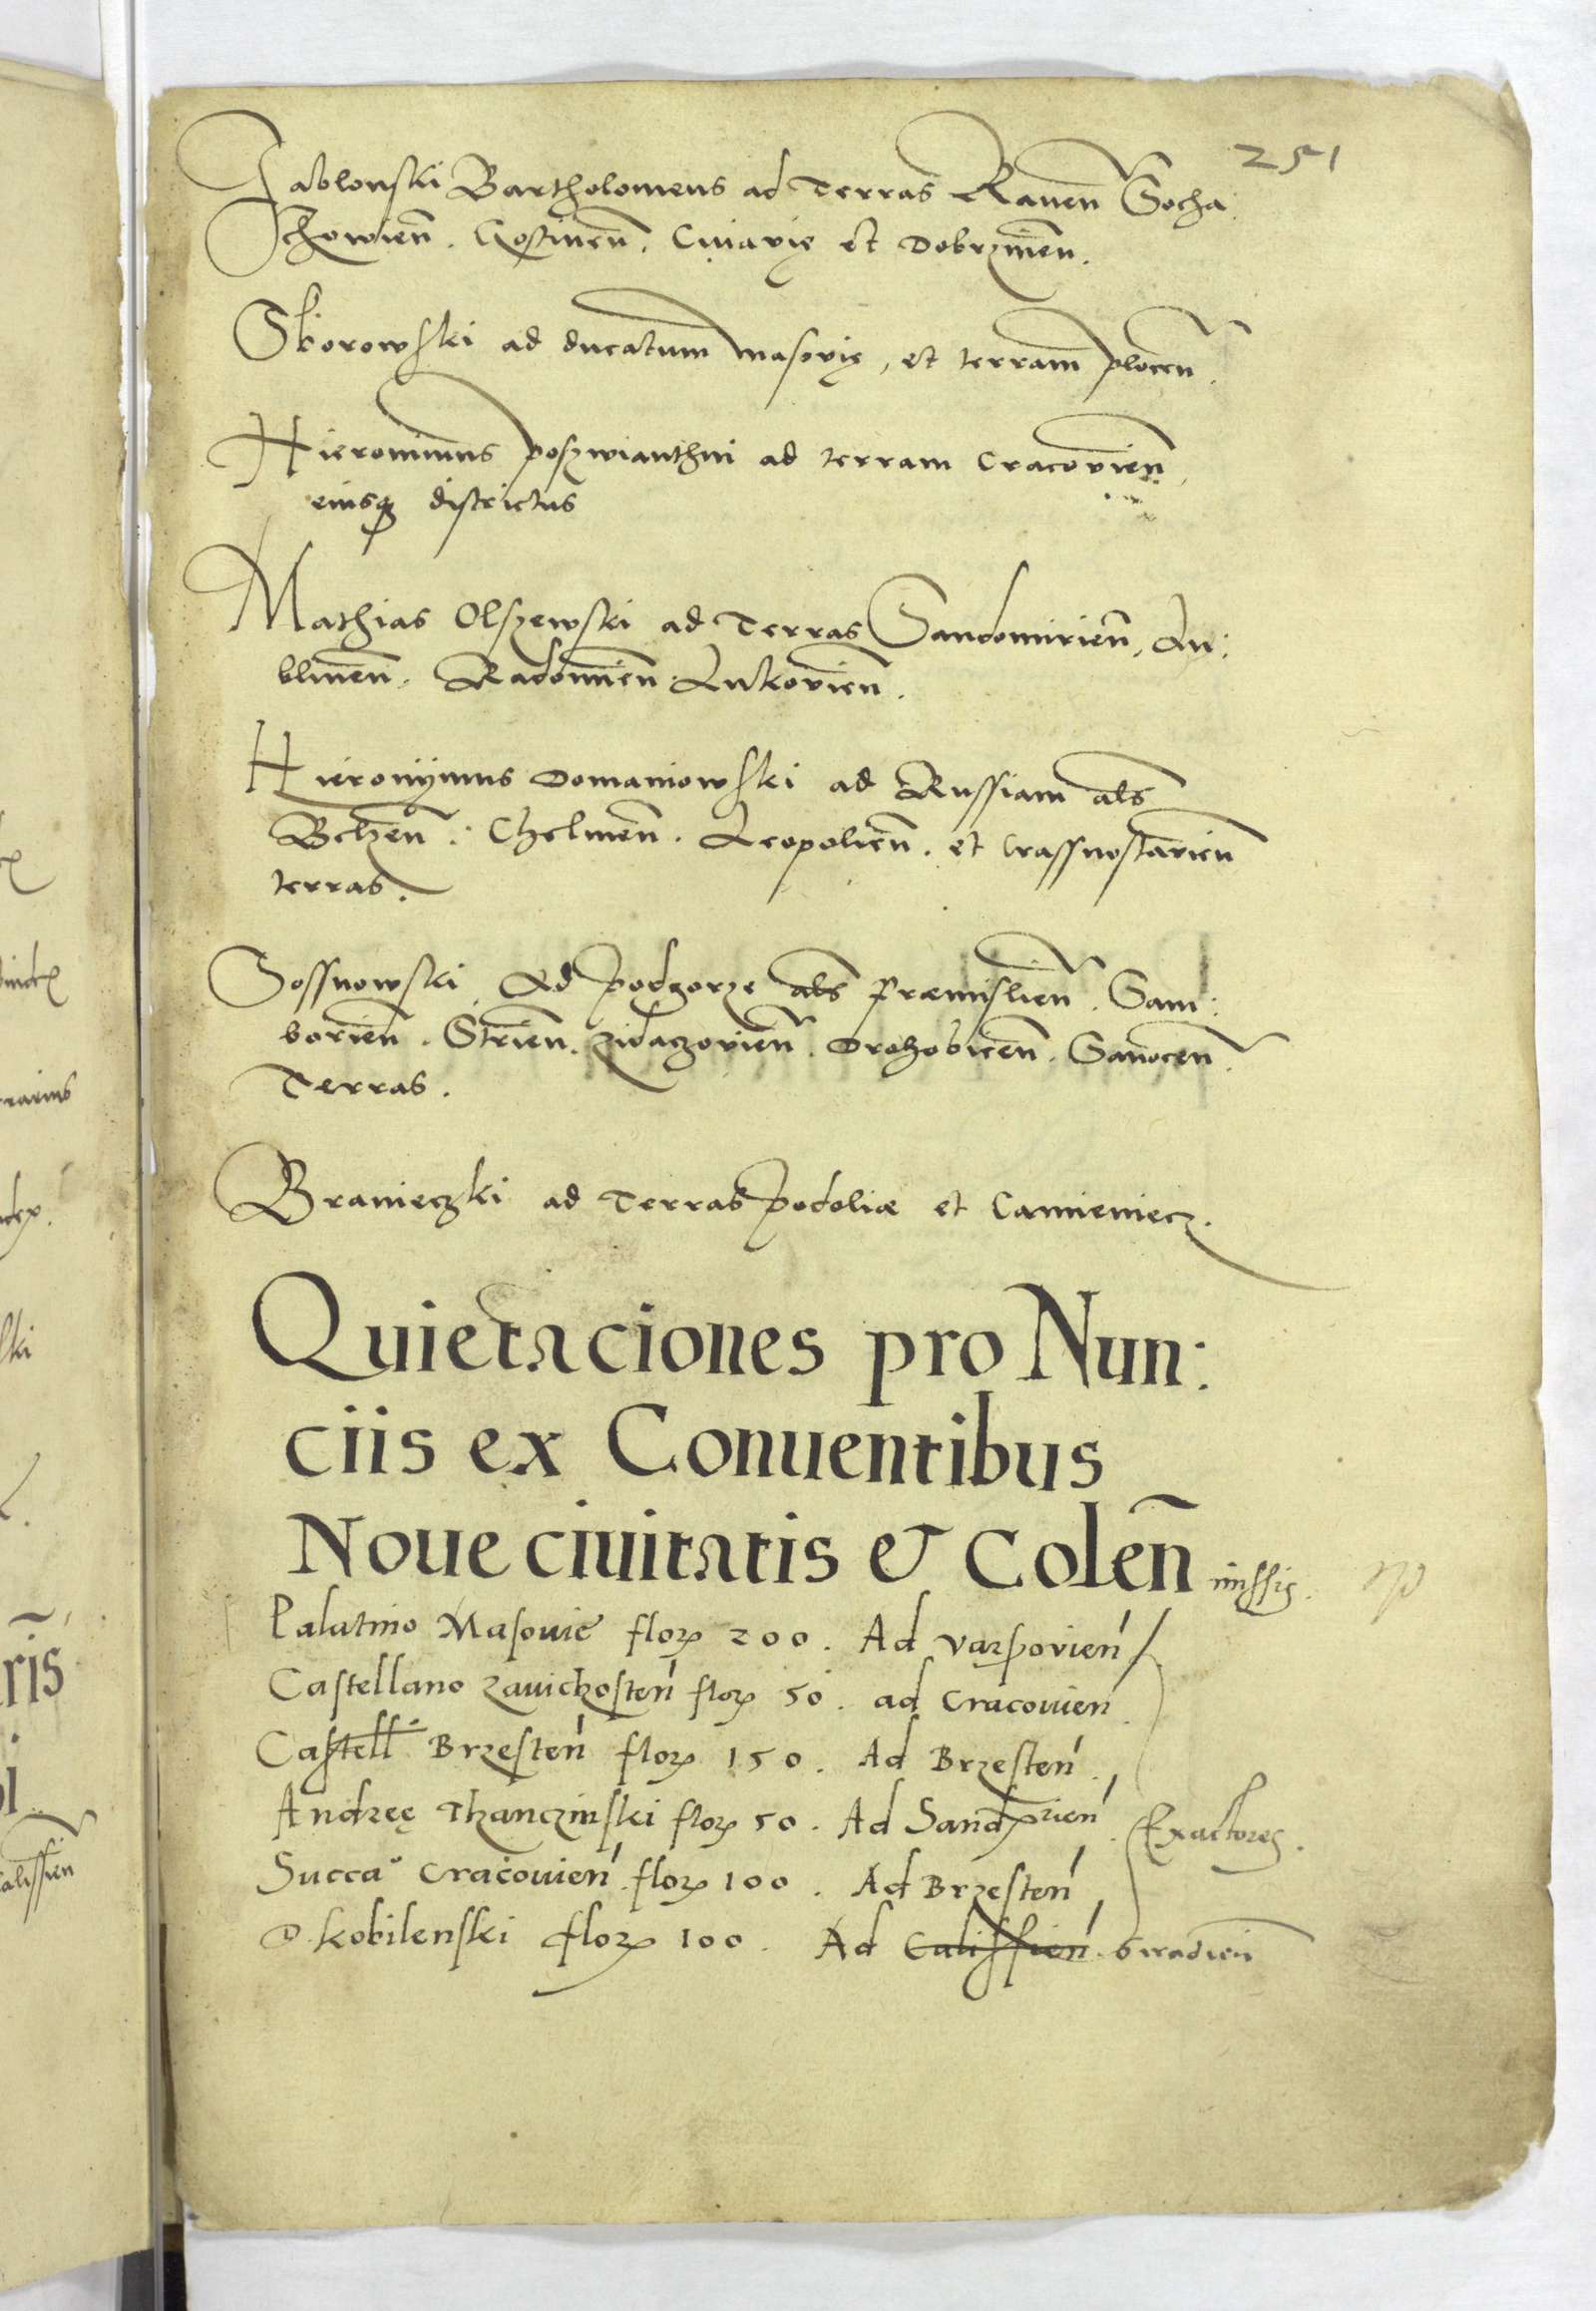 251
Jablonski Bartholomeus ad Terras Rauen̄ Socha:
schowien̄. Gostinen̄. Cuiavię et Dobrzinen̄.
Skorowski ad ducatum Masovię, et terram plocen̄.
Hieronimus poszwianthni ad terram Cracovien̄
eiusq districtus
Mathias Olszewski ad Terras Sandomirien̄, Lu:
blinen̄. Radomien̄. Lukovien̄.
Hieronÿmus Domaniowski ad Russiam als
Belzen̄. Chelmen̄. Leopolien̄. et Crassnostavien̄
terras.
Sossnowski Ad podgorze als Præmislien̄. Sam:
borien̄. Strien̄. Zidaczovien̄. Drohobicen̄. Sanocen̄.
Terras.
Branieczki ad Terras podoliæ et Camieniecz.
Quietaciones pro Nun:
ciis ex Conuentibus
Noue ciuitatis & Colen̄ missis.
Palatino Masouie flor 200. Ad varssovien̄
Castellano Zauichosten̄ flor 50. ad Cracouien̄
Castell Brzesten̄ flor 150. Ad Brzesten̄.
Andreę Thanczinski flor 50. Ad Sandrien̄. Exactores.
Succa° Cracouien̄. flor 100. Ad Brzesten̄
D. Kobilenski flor 100. Ad Calissien̄. Siradien̄
ris
calissien̄